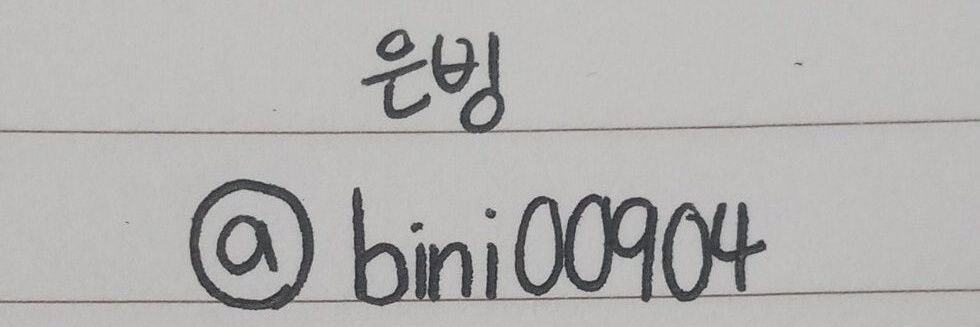 은빙
@bini00904